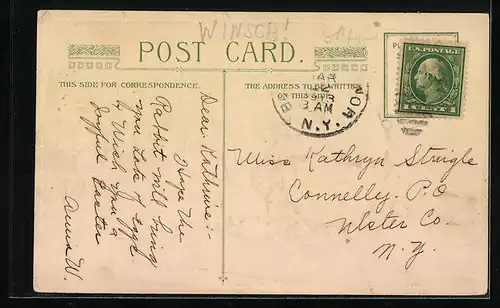 WINSCH!
POST CARD.
THIS SIDE FOR CORRESPONDENCE.
THE ADDRESS TO BE WRITTEN
ON THIS SIDE
U.S. POSTAGE
1 CENT 1
3 AM
N.Y.
Dear Kathrine:-
Hope the
Rabbit will bring
you Lots of eggs
& Wish you a
Joyful Easter
Anna W.
Miss Kathryn Stringle
Connelly. P.O
Ulster Co.
N.Y.